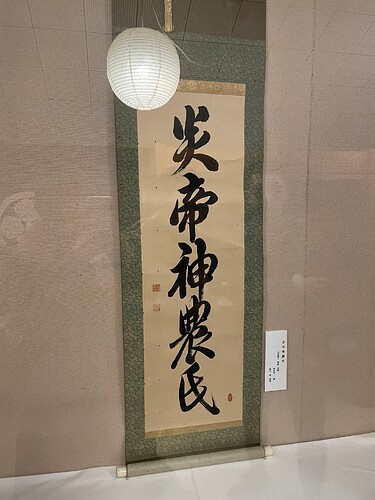 炎帝神農氏